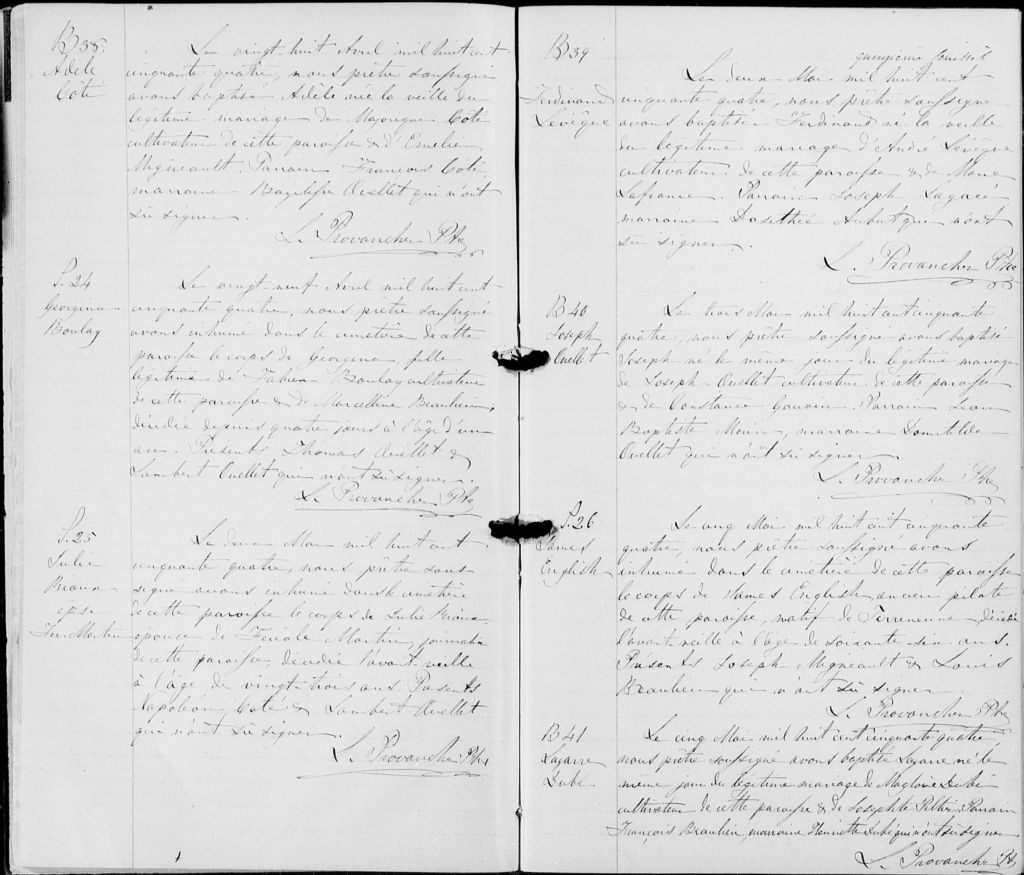 B 38.
Adèle
Coté
Le vingt-huit Avril mil huit cent
cinquante quatre, nous prêtre soussigné
avons baptisé Adèle née la veille du
légitime mariage de Majorique Coté
cultivateur de cette paroisse & d'Emelie
Migneault. Parrain François Coté,
marraine Ouellet qui n'ont
sû signer.
L. Provancher Ptre
S. 24
Georgina
Boulay
Le vingt-neuf Avril mil huit cent
cinquante quatre, nous prêtre soussigné
avons inhumé dans le cimetière de cette
paroisse le corps de Georgina, fille
légitime de Fabien Boulay cultivateur
de cette paroisse & de Marcelline Beaulieu,
décédée depuis quatre jours à l'âge d'un
an. Présents Thomas Ouellet &
Lambert Ouellet qui n'ont sû signer.
L. Provancher Ptre
S. 25
Julie
Rioux
epse
Martin
Le deux Mai mil huit cent
cinquante quatre, nous prêtre sous-
signé avons inhumé dans le cimetière
de cette paroisse le corps de Julie Rioux,
épouse de Martin, journalier
de cette paroisse, décédée l'avant-veille
à l'âge de vingt-trois ans. Présents
Napoléon Coté & Lambert Ouellet
qui n'ont sû signer.
L. Provancher Ptre
B 39
Ferdinand
Levêque
quinzième feuillet
Le deux Mai mil huit cent
cinquante quatre, nous prêtre soussigné
avons baptisé Ferdinand né la veille
du légitime mariage d'André Levêque
cultivateur de cette paroisse & de Marie
Lafrance. Parrain Joseph Lagacé
marraine Dosethée Aubut qui n'ont
sû signer.
L. Provancher Ptre
B 40
Joseph
Ouellet
Le trois Mai mil huit cent cinquante
quatre, nous prêtre soussigné avons baptisé
Joseph né le même jour du légitime mariage
de Joseph Ouellet cultivateur de cette paroisse
& de Constance Gauvin. Parrain Jean
Baptiste Morin, marraine Domitilde
Ouellet qui n'ont sû signer.
L. Provancher Ptre
S. 26
James
English
Le cinq Mai mil huit cent cinquante
quatre, nous prêtre soussigné avons
inhumé dans le cimetière de cette paroisse
le corps de James English, ancien pilote
de cette paroisse, natif de Terreneuve, décédé
l'avant-veille à l'âge de soixante six ans.
Présents Joseph Migneault & Louis
Beaulieu qui n'ont sû signer.
L. Provancher Ptre
B 41
Lazarre
Dubé
Le cinq Mai mil huit cent cinquante quatre
nous prêtre soussigné avons baptisé Lazare né le
même jour du légitime mariage de Magloire Dubé
cultivateur de cette paroisse & de Josephte Peltier. Parrain
François Beaulieu, marraine Henriette Dubé qui n'ont sû signer
L. Provancher Ptre